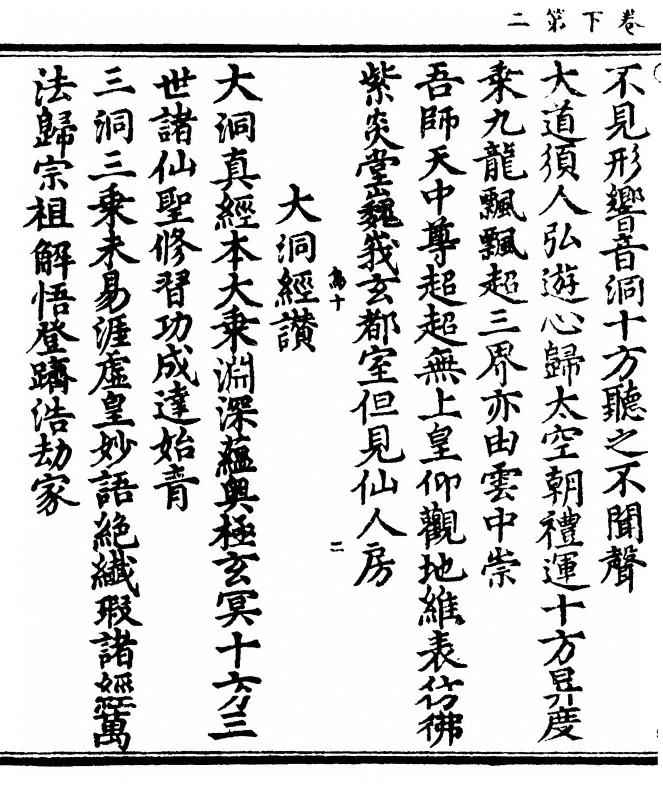 卷下第二
不見形響音洞十方聽之不聞聲
大道須人弘遊心歸太空朝禮運十方昇度
乘九龍飄飄超三界亦由雲中崇
吾師天中尊超超無上皇仰觀地維表彷彿
紫炎堂巍峩玄都室但見仙人房
二
大洞經讚
萬十
大洞真經本大乘淵深蘊奧極玄冥十方三
世諸仙聖修習功成達始青
三洞三乘未易涯虛皇妙語絕纖瑕諸經萬
法歸宗祖解悟登躋浩劫家